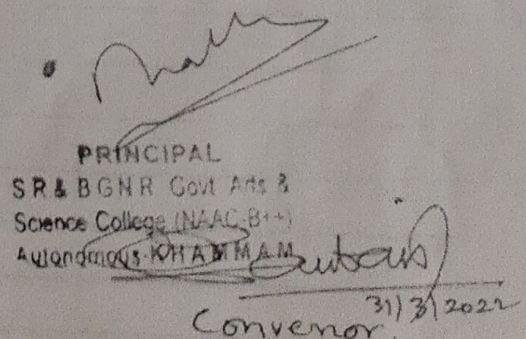 PRINCIPAL
SR & BGNR Govt Arts &
Science College (NAAC-B++)
Autonomous KHAMMAM
31/3/2022
Convenor